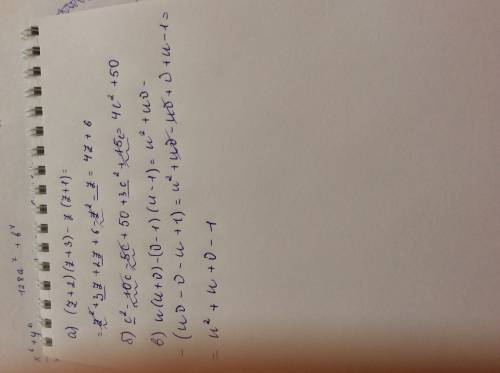 x⁶+y⁶ 128a⁷ + b⁷
а) (z+2)(z+3) - z(z+1) =
= z² + 3z + 2z + 6 - z² - z = 4z + 6
б) c² - 10c - 5c + 50 + 3c² + 15c = 4c² + 50
в) u(u+v) - (v-1)(u-1) = u² + uv -
- (uv - v - u + 1) = u² + uv - uv + v + u - 1 =
= u² + u + v - 1